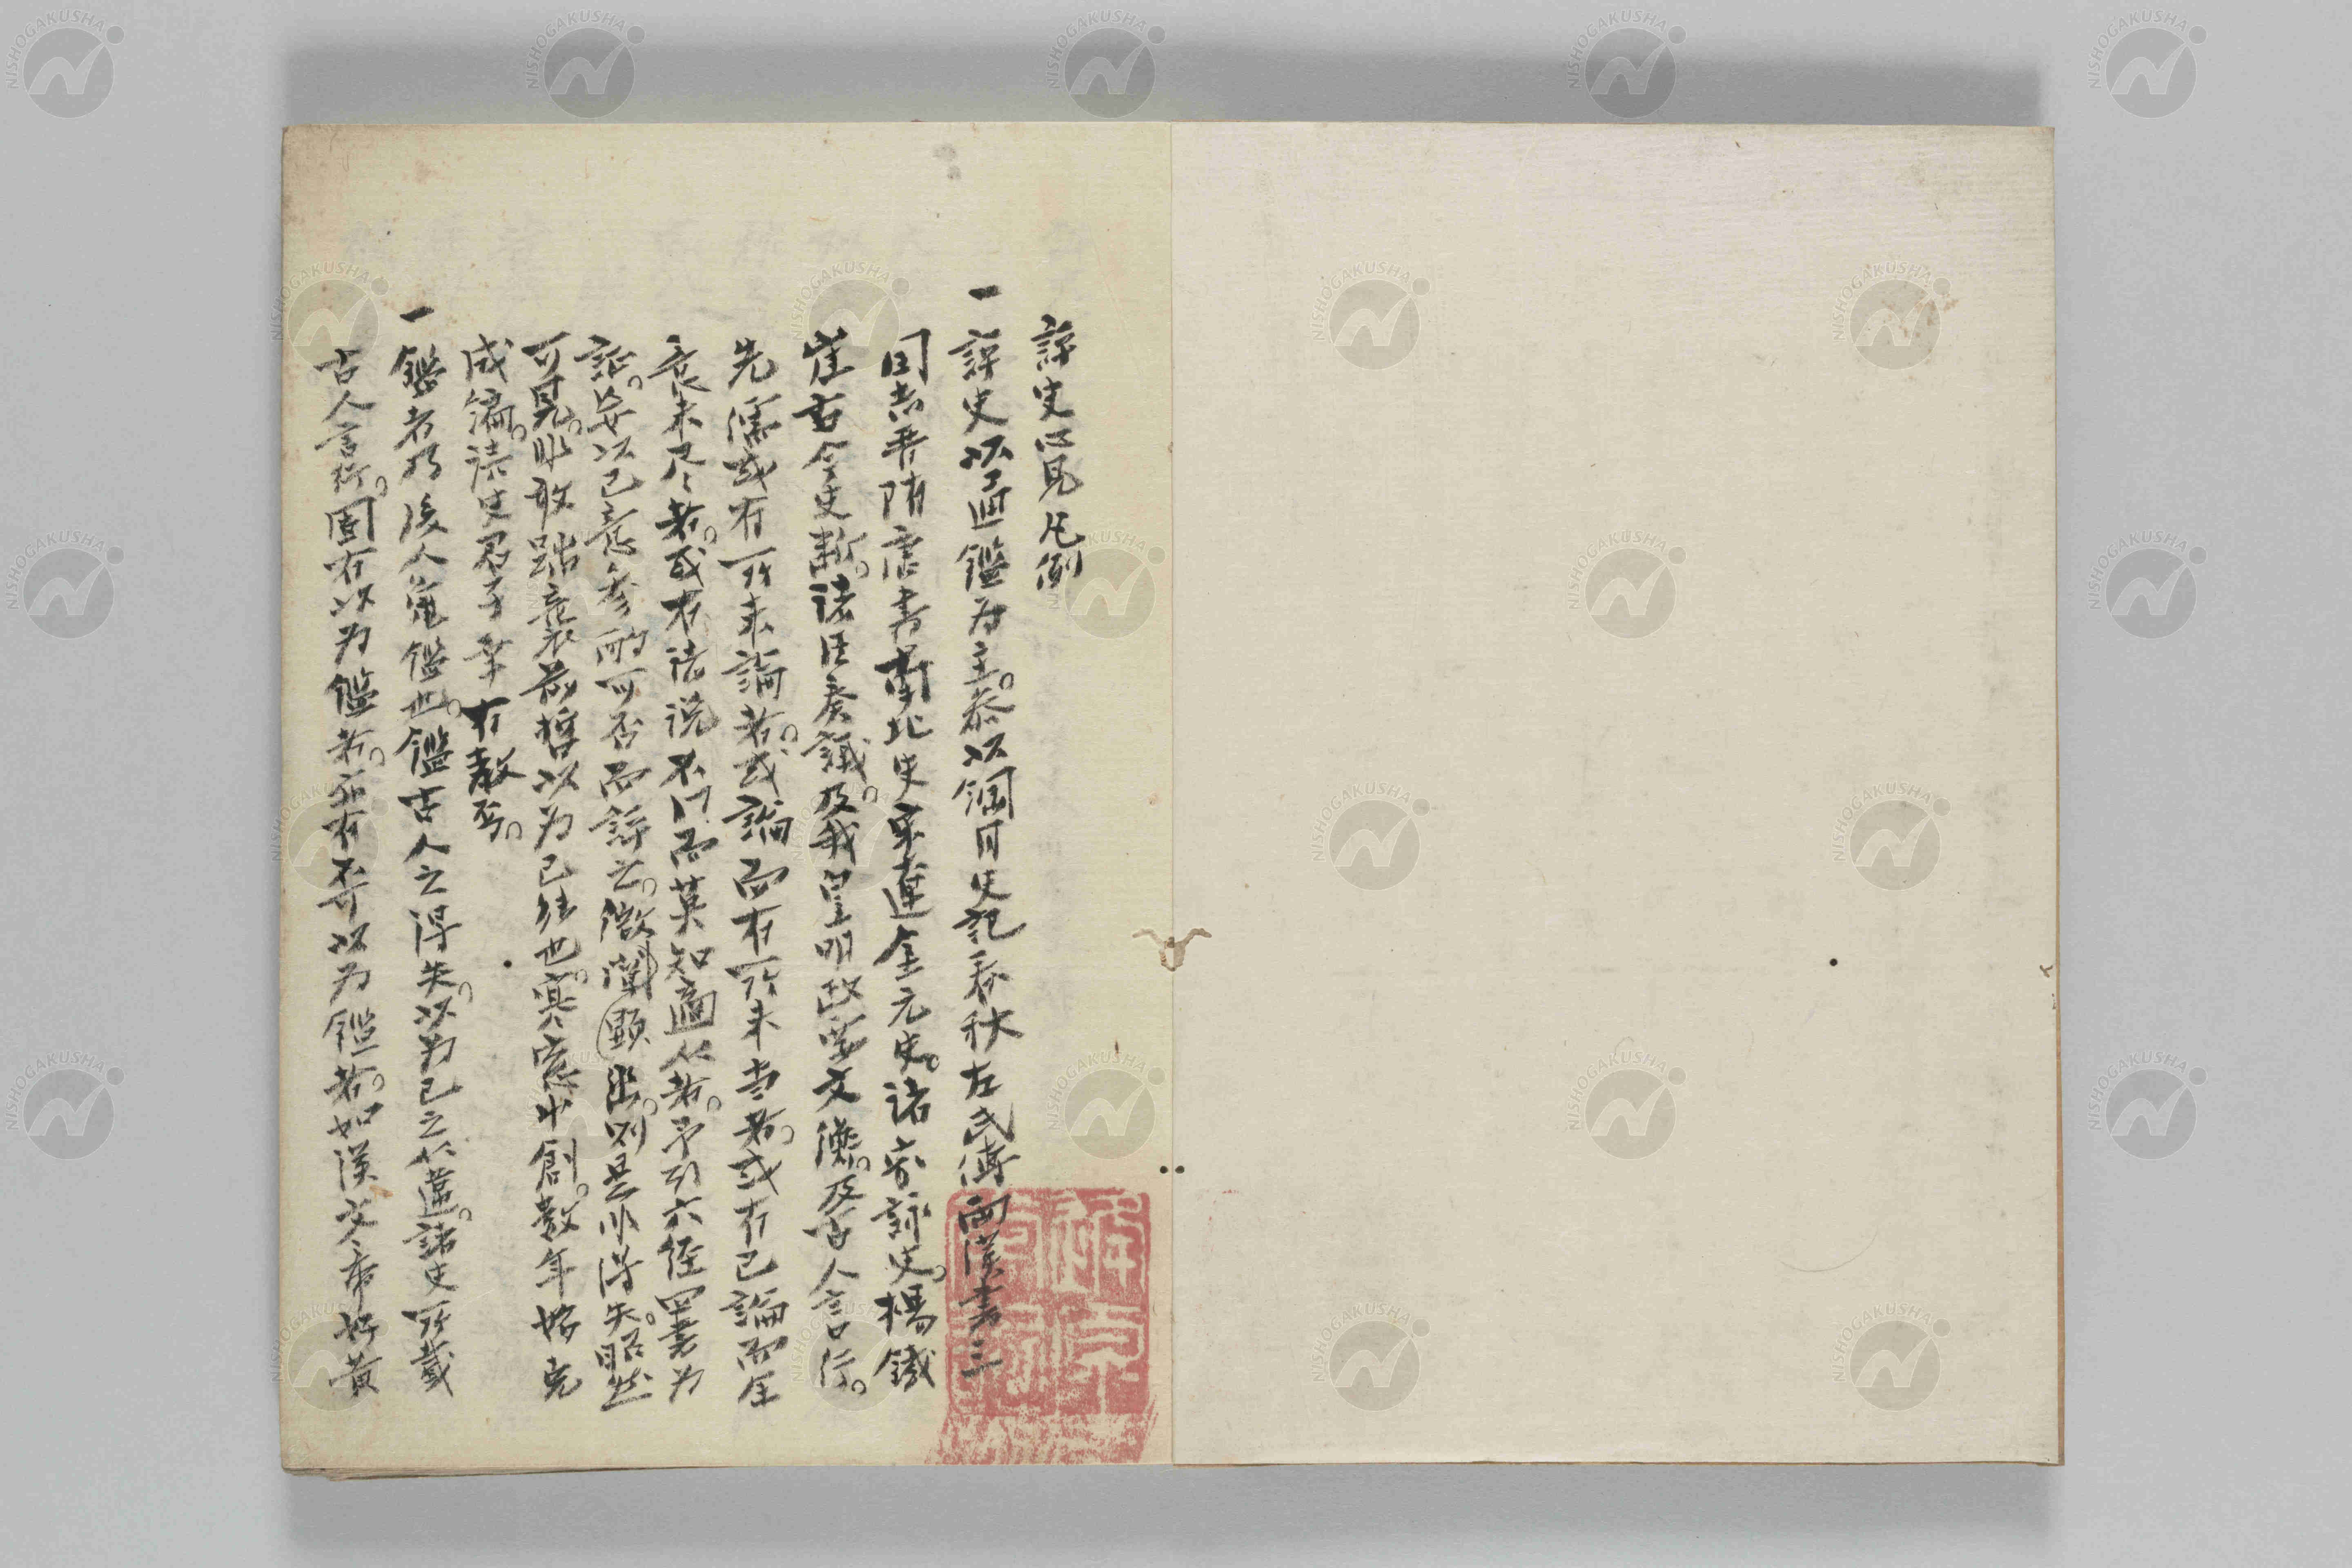 評史心見凡例
一評史以通鑑為主。參以綱目史記春秋左氏傳兩漢書三
國志晋隋唐書南北史宋遼金元史。諸家詠史。楊鐵
崖古今史斷。諸臣奏議。及我皇明政要文衡。及古人言行。
先儒或有所未論者。或論而有所未當者。或有已論而全
意未尽者。或有諸說不同而莫知適從者。予引六経四書为
証。安以己意参酌可否而評之。微闡顕幽。則是非得失。昭然
可見。非敢蹈襲前哲以为己能也。窓中創。数年始克
成编。読史君子幸有教焉。
一鑑者乃後人龜鑑也。鑑古人之得失。以为己之從違。諸史所載
古人言行。固有以为鑑者。亦有不可以为鑑者。如漢文帝好黄
NISHOGAKUSHA